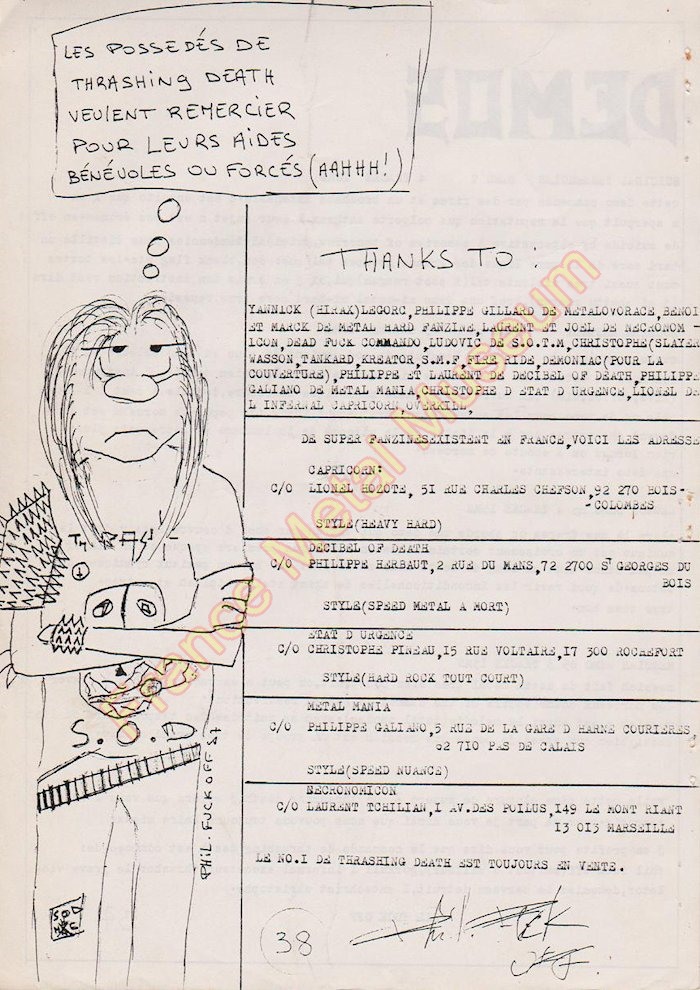 LES POSSEDÉS DE
THRASHING DEATH
VEULENT REMERCIER
POUR LEURS AIDES
BÉNÉVOLES OU FORCÉS (AAHHH!)
THANKS TO.
YANNICK (HIRAX)LEGORC,PHILIPPE GILLARD DE METALOVORACE,BENOI
ET MARCK DE METAL HARD FANZINE,LAURENT ET JOEL DE NECRONOM -
ICON,DEAD FUCK COMMANDO,LUDOVIC DE S.O.T.M,CHRISTOPHE(SLAYER
WASSON,TANKARD,KREATOR,S.M.F,FIRE RIDE,DEMONIAC(POUR LA
COUVERTURE),PHILIPPE ET LAURENT DE DECIBEL OF DEATH,PHILIPPE
GALIANO DE METAL MANIA,CHRISTOPHE D ETAT D URGENCE,LIONEL DE
L INFERNAL CAPRICORN,OVERKILL,
DE SUPER FANZINESEXISTENT EN FRANCE,VOICI LES ADRESSE
CAPRICORN:
C/O LIONEL HOZOTE, 5I RUE CHARLES CHEFSON,92 270 BOIS-
-COLOMBES
STYLE(HEAVY HARD)
DECIBEL OF DEATH
C/O PHILIPPE HERBAUT,2 RUE DU MANS,72 2700 ST GEORGES DU
BOIS
STYLE(SPEED METAL A MORT)
ETAT D URGENCE
C/O CHRISTOPHE PINEAU,I5 RUE VOLTAIRE,I7 300 ROCHEFORT
STYLE(HARD ROCK TOUT COURT)
METAL MANIA
C/O PHILIPPE GALIANO,5 RUE DE LA GARE D HARNE COURIERES,
62 710 PAS DE CALAIS
STYLE(SPEED NUANCE)
NECRONOMICON
C/O LAURENT TCHILIAN,I AV.DES POILUS,I49 LE MONT RIANT
I3 0I3 MARSEILLE
LE NO.I DE THRASHING DEATH EST TOUJOURS EN VENTE.
THRASH
S.O.D
PHIL.FUCKOFF 87
38
France Metal Museum